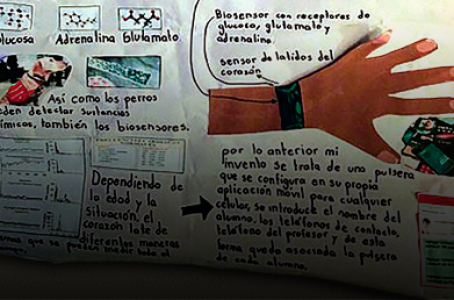 Biosensor con receptores de
glucosa, glutamato y
adrenalina.
sensor de latidos del
corazón
Glucosa Adrenalina Glutamato
Así como los perros
pueden detectar sustancias
químicas, también los biosensores.
Dependiendo de
la edad y la
situación, el
corazón late de
diferentes maneras
que se pueden medir todo el
por lo anterior mi
invento se trata de una pulsera
que se configura en su propia
aplicación móvil para cualquier
celular, se introduce el nombre del
alumno, los teléfonos de contacto,
teléfono del profesor y de esta
forma queda asociada la pulsera
de cada alumno.